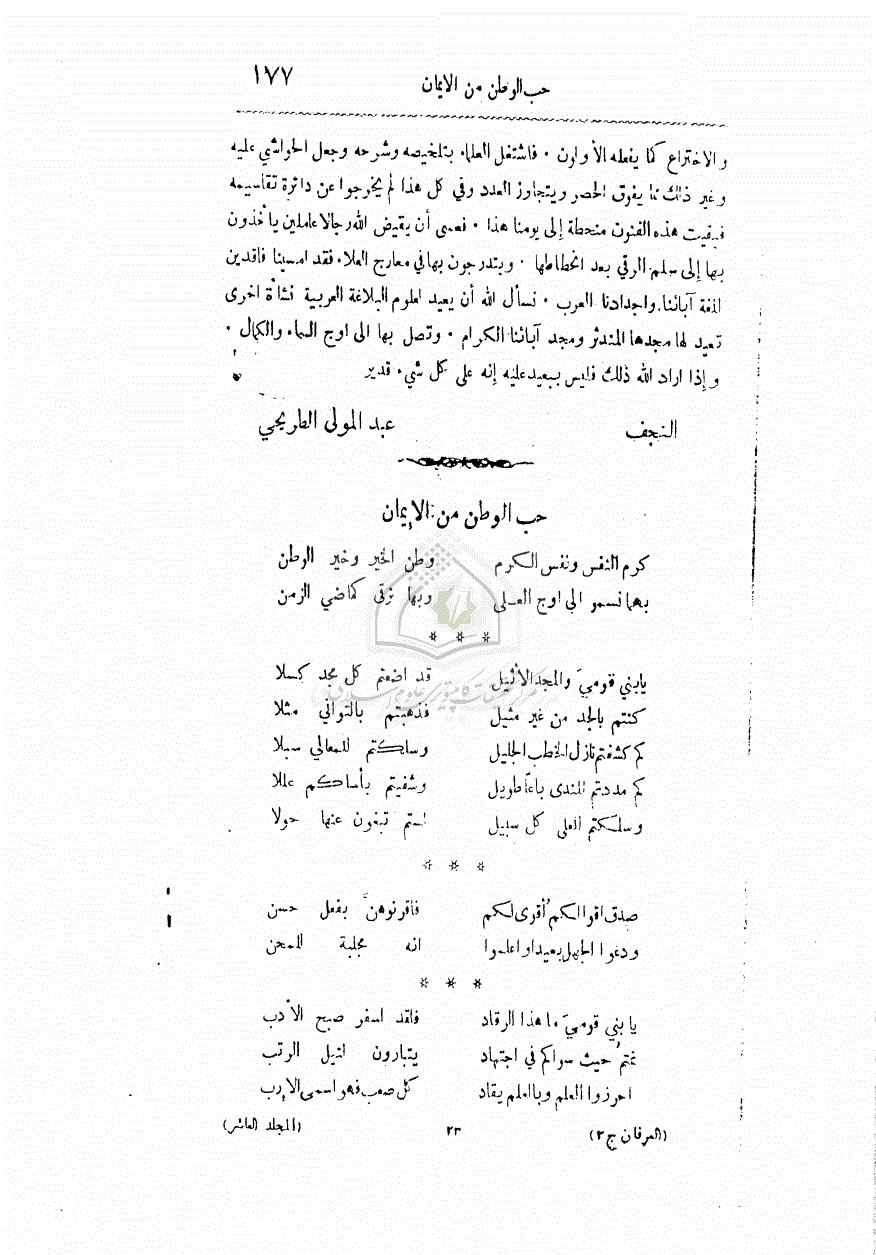 حب الوطن من الايمان ١٧٧
والاختراع كما يفعله الأولون ٠ فاشتغل العلماء بتلخيصه وشرحه وجعل الحواشي عليه
وغير ذلك مما يفوق الحصر ويتجاوز العدد وفي كل هذا لم يخرجوا عن دائرة تقاسيمه
فبقيت هذه الفنون منحطة إلى يومنا هذا ٠ فعسى أن يقيض الله رجالا عاملين يأخذون
بها إلى سلم الرقي بعد انحطاطها ٠ ويتدرجون بها في معارج العلاء فقد امسينا فاقدين
لغة آبائنا واجدادنا العرب ٠ نسأل الله أن يعيد لعلوم البلاغة العربية نشأة اخرى
تعيد لها مجدها المندثر ومجد آبائنا الكرام ٠ وتصل بها الى اوج السماء والكمال ٠
وإذا اراد الله ذلك فليس ببعيد عليه إنه على كل شيء قدير
النجف عبد المولى الطريحي
حب الوطن من الإيمان
كرم النفس ونفس الكرم وطن الخير وخير الوطن
بهما نسمو الى اوج العلى وبها نرقى كماضي الزمن
* * *
يابني قوميَ والمجد الأثيل قد اضعتم كل مجد كسلا
كنتم بالجد من غير مثيل فذهبتم بالتواني مثلا
كم كشفتم نازل الخطب الجليل وسلكتم للمعالي سبلا
كم مددتم للندى باعًا طويل وشفيتم بأساكم عللا
وسلكتم للعلى كل سبيل لستم تبغون عنها حولا
* * *
صدق اقوالكم أقوى لكم فاقرنوهنَّ بفعل حسن
ودعوا الجهل بعيدا واعلموا انه مجلبة للمحن
* * *
يا بني قوميَ ما هذا الرقاد فلقد اسفر صبح الأدب
نمتمُ حيث سواكم في اجتهاد يتبارون لنيل الرتب
احرزوا العلم وبالعلم يقاد كل صعب فهو اسمى الإرب
(العرفان ج ٢) ٢٣ (المجلد العاشر)